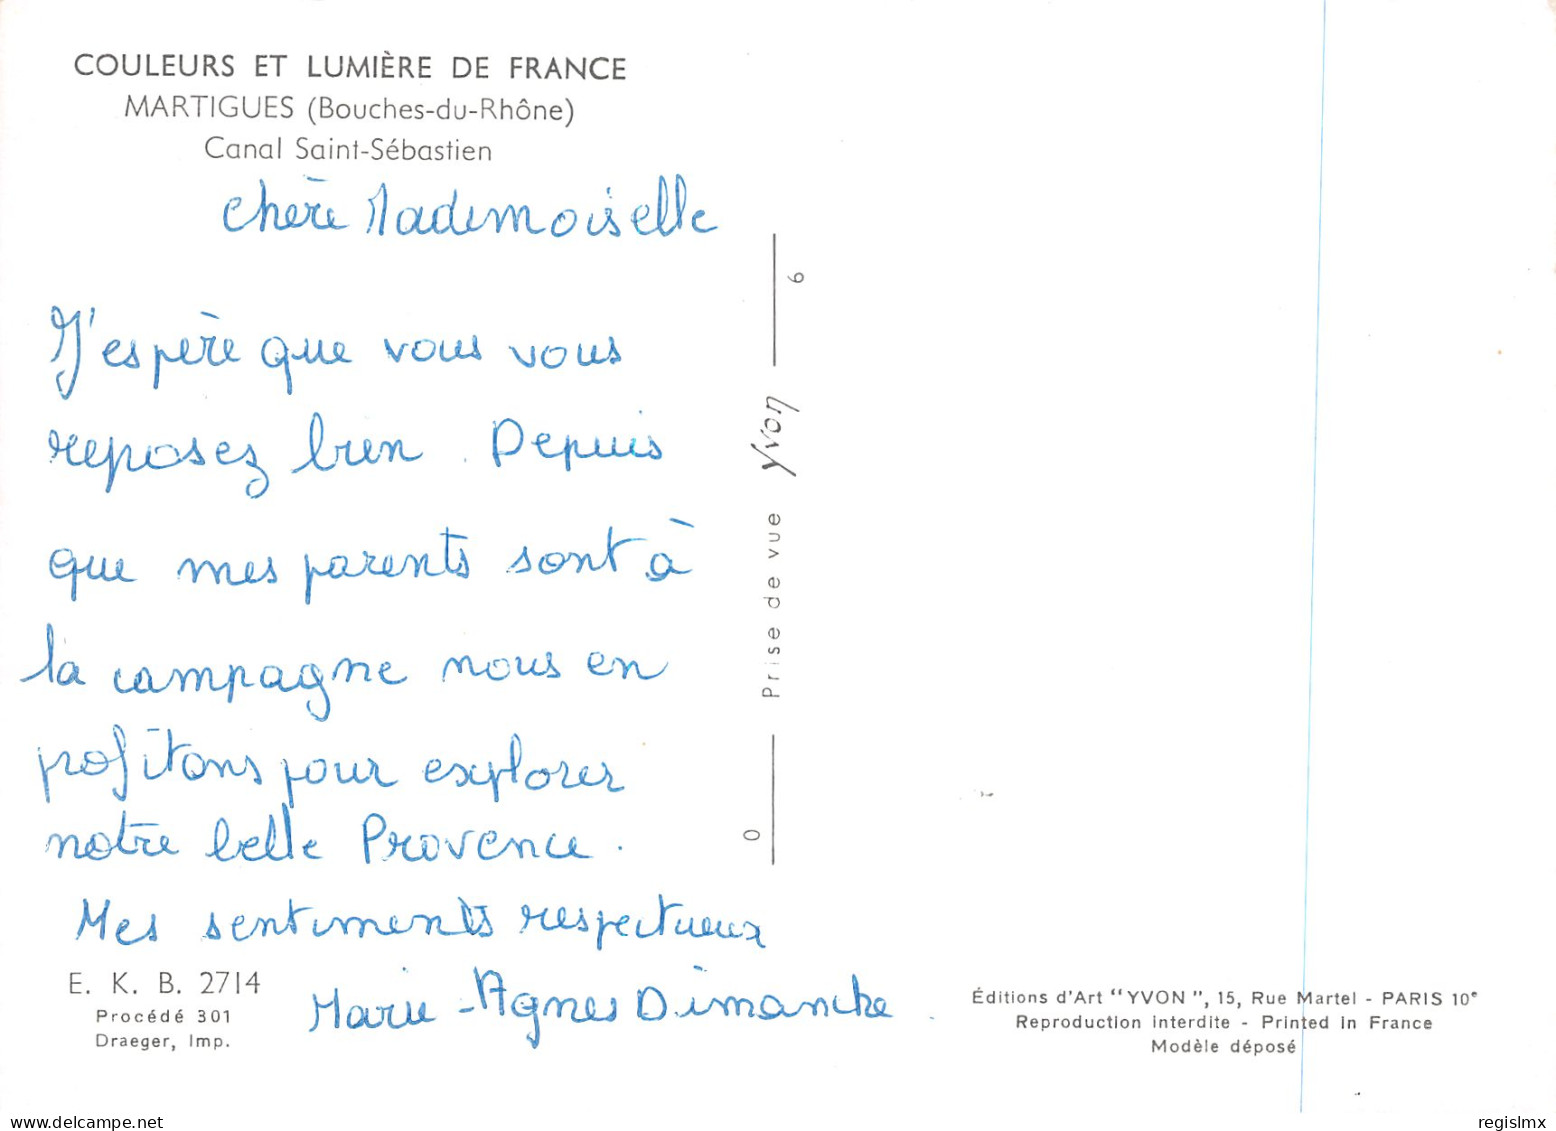 COULEURS ET LUMIÈRE DE FRANCE
MARTIGUES (Bouches-du-Rhône)
Canal Saint-Sébastien
Chère Mademoiselle
J'espère que vous vous
reposez bien. Depuis
que mes parents sont à
la campagne nous en
profitons pour explorer
notre belle Provence.
Mes sentiments respectueux
Marie-Agnes Dimanche.
E. K. B. 2714
Procédé 301
Draeger, Imp.
0 Prise de vue Yvon 6
Éditions d'Art "YVON", 15, Rue Martel - PARIS 10e
Reproduction interdite - Printed in France
Modèle déposé
regislmx